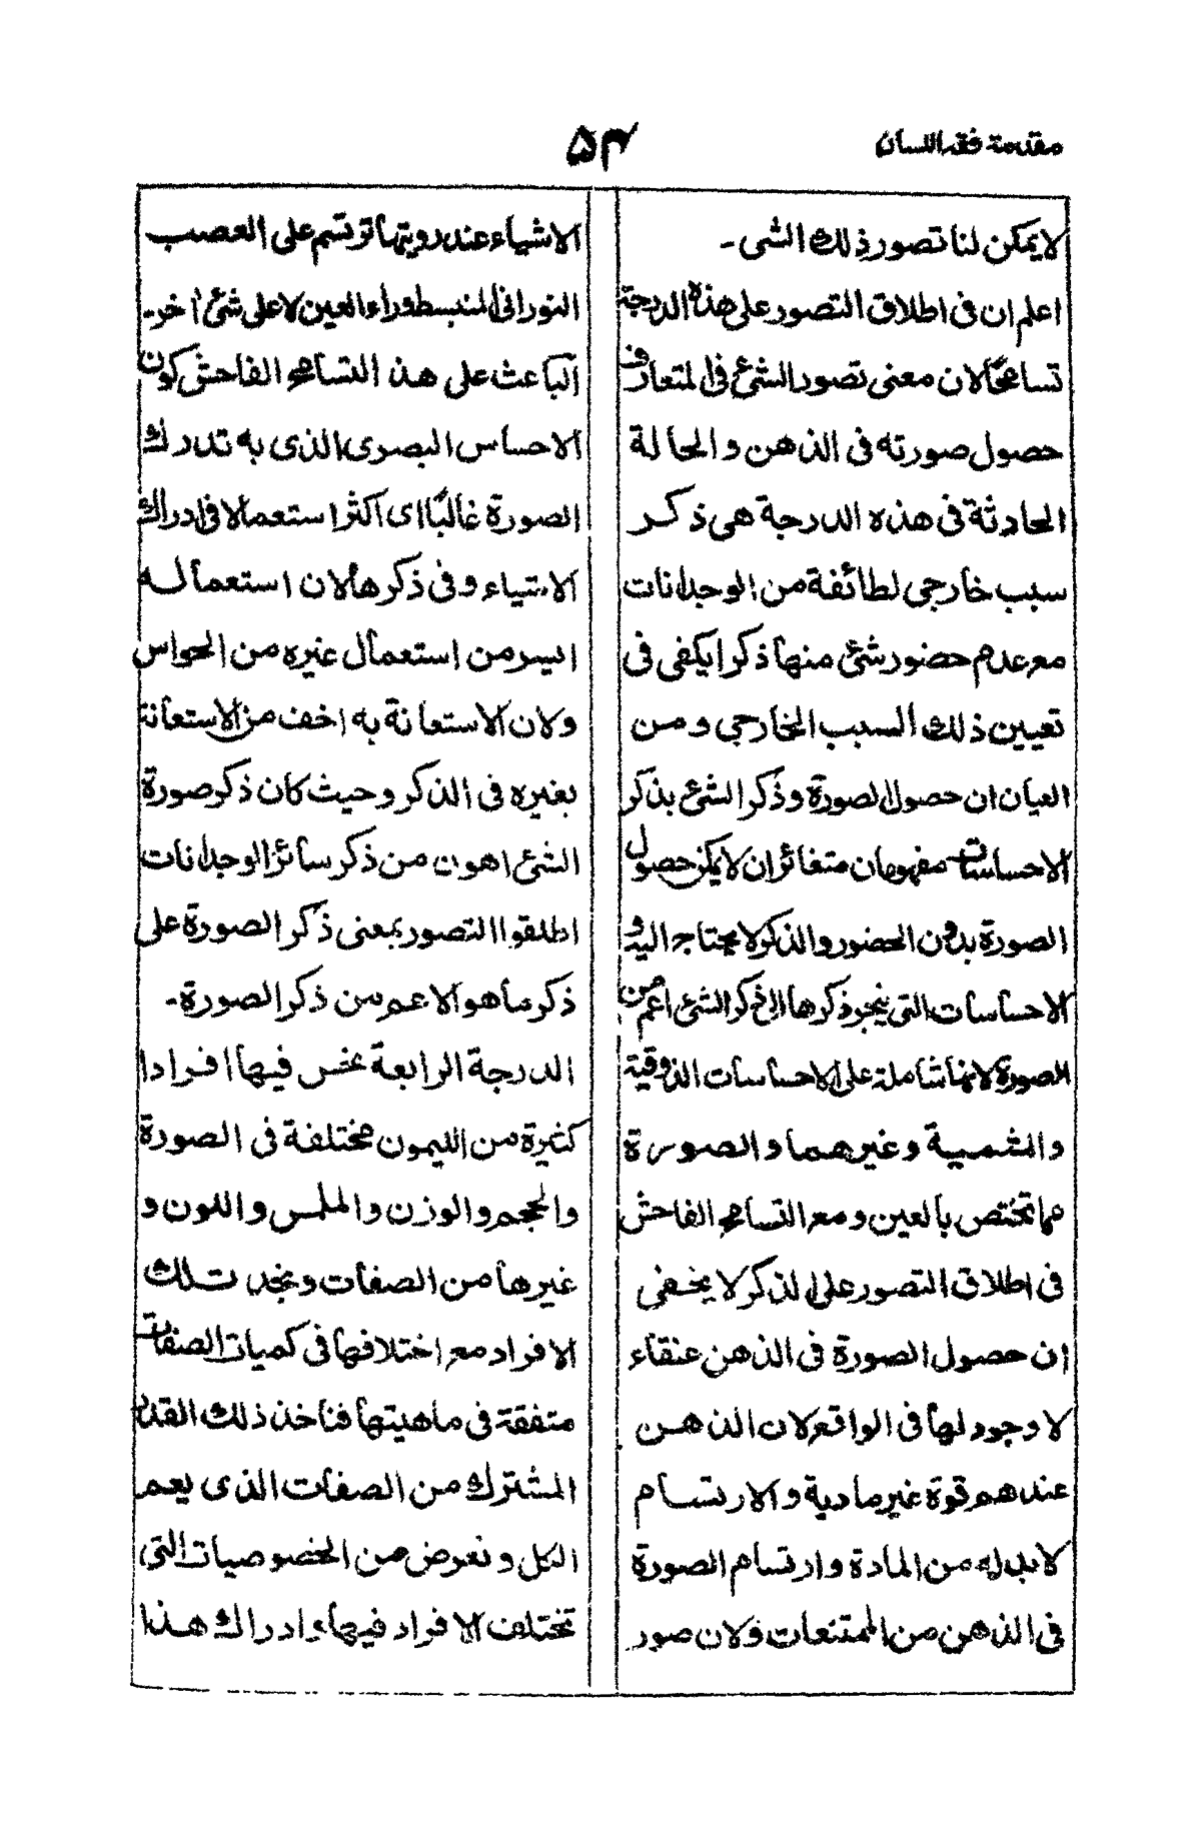 مقدمة فقه اللسان
۵۴
لا يمكن لنا تصور ذلك الشى -
اعلم ان فى اطلاق التصور على هذه الدرجة
تسامحًا لان معنى تصور الشئ فى المتعارف
حصول صورته فى الذهن و الحالة
الحادثة فى هذه الدرجة هى ذكر
سبب خارجى لطائفة من الوجدانات
مع عدم حضور شئ منها ذكرا يكفى فى
تعيين ذلك السبب الخارجى ومن
العيان ان حصول الصورة وذكر الشئ بذكر
الاحساسات مفهومان متغائران لا يمكن حصول
الصورة بدون الحضور والذكر لا يحتاج اليه و
الاحساسات التى ينجر ذكرها الى ذكر الشئ اعم من
الصورة لانها شاملة على الاحساسات الذوقية
والشمية وغيرهما والصورة
مما تختص بالعين ومع التسامح الفاحش
فى اطلاق التصور على الذكر لا يخفى
ان حصول الصورة فى الذهن عنقاء
لا وجود لها فى الواقع لان الذهن
عندهم قوة غير مادية والارتسام
لا بد له من المادة وارتسام الصورة
فى الذهن من الممتنعات ولان صور
الاشياء عند رويتها ترتسم على العصب
النورانى المنبسط وراء العين لا على شئ اخر-
الباعث على هذا التسامح الفاحش كون
الاحساس البصرى الذى به تدرك
الصورة غالبًا اى اكثر استعمالا فى ادراك
الاشياء وفى ذكرها لان استعماله
ايسر من استعمال غيره من الحواس
ولان الاستعانة به اخف من الاستعانة
بغيره فى الذكر وحيث كان ذكر صورة
الشئ اهون من ذكر سائر الوجدانات
اطلقوا التصور بمعنى ذكر الصورة على
ذكر ما هو الاعم من ذكر الصورة-
الدرجة الرابعة نحس فيها افرادا
كثيرة من الليمون مختلفة فى الصورة
والحجم والوزن والملمس واللون و
غيرها من الصفات ونجد تلك
الافراد مع اختلافها فى كميات الصفات
متفقة فى ماهيتها فناخذ ذلك القدر
المشترك من الصفات الذى يعم
الكل ونعرض من الخصوصيات التى
تختلف الافراد فيها وادراك هذا